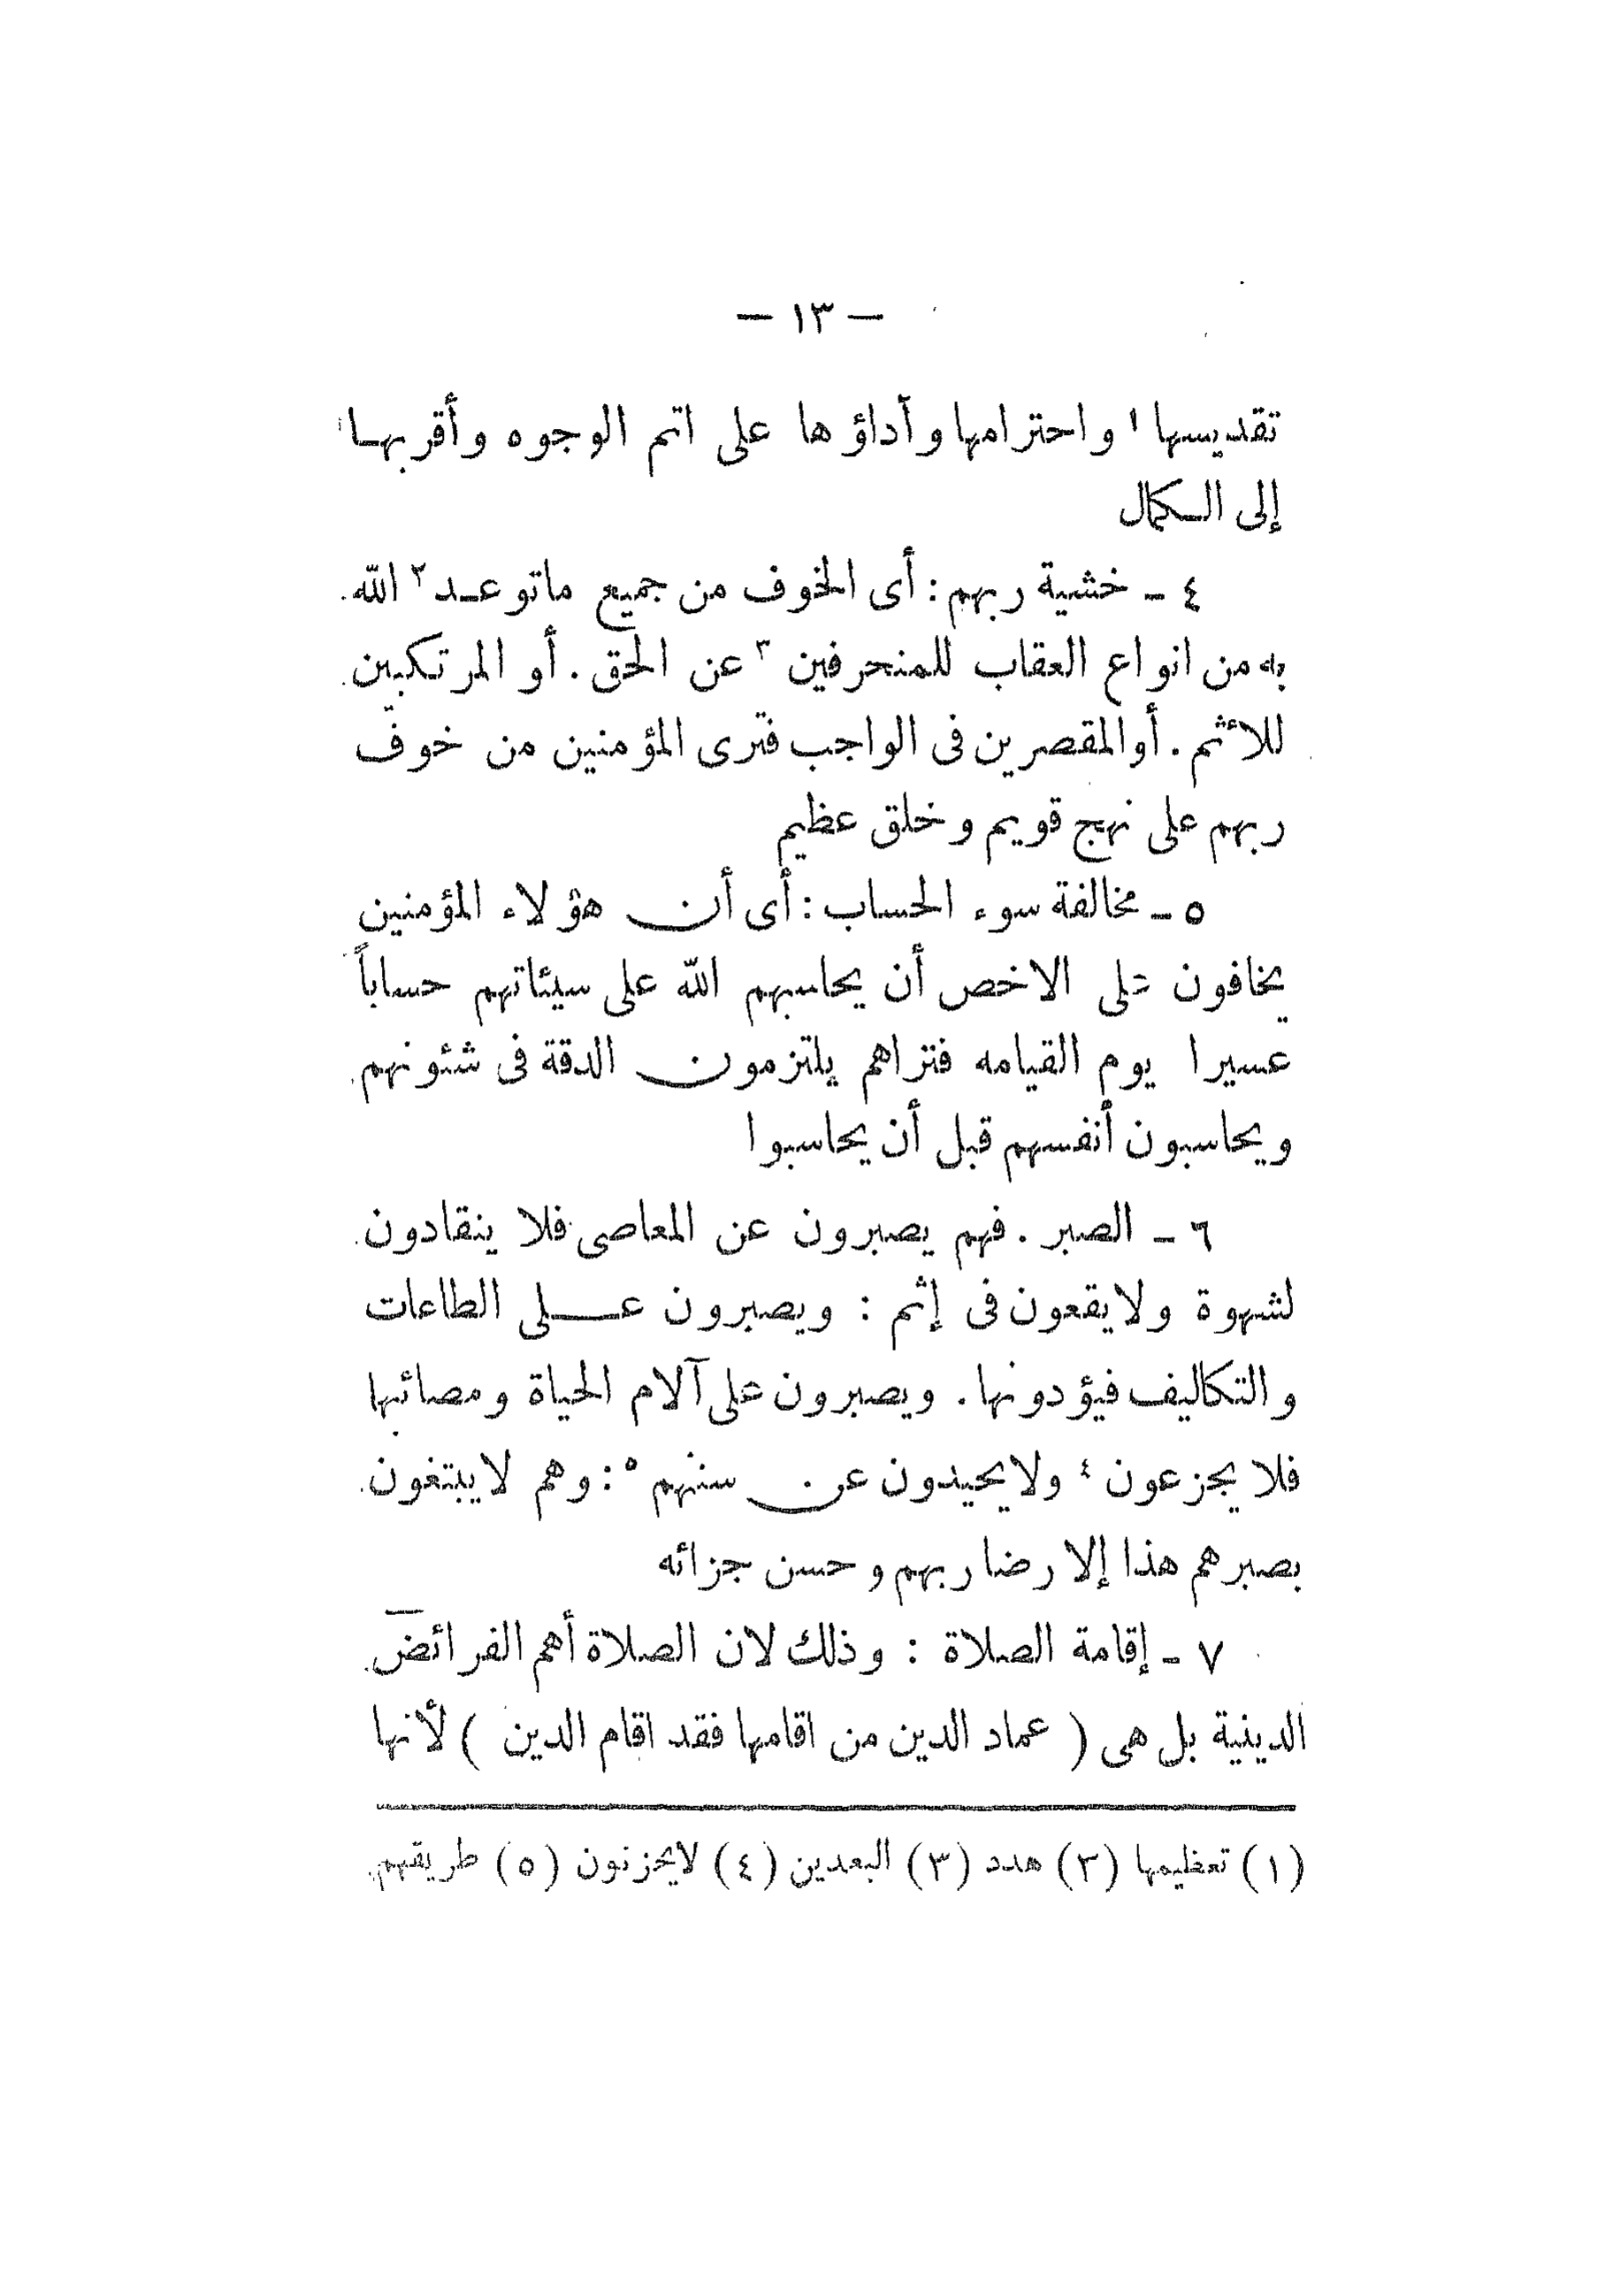 — ١٣ —
تقديسها ١ واحترامها وآداؤها على اتم الوجوه وأقربها
إلى الكمال
٤ - خشية ربهم : أى الخوف من جميع ماتوعد ٢ الله
به من انواع العقاب للمنحرفين ٣ عن الحق . أو المرتكبين
للأثم . أو المقصرين فى الواجب فترى المؤمنين من خوف
ربهم على نهج قويم وخلق عظيم
٥ - مخالفة سوء الحساب : أى أن هؤلاء المؤمنين
يخافون على الاخص أن يحاسبهم الله على سيئاتهم حساباً
عسيرا يوم القيامه فتراهم يلتزمون الدقة فى شئونهم
ويحاسبون أنفسهم قبل أن يحاسبوا
٦ - الصبر . فهم يصبرون عن المعاصى فلا ينقادون
لشهوة ولا يقعون فى إثم : ويصبرون على الطاعات
والتكاليف فيؤدونها . ويصبرون على آلام الحياة ومصائبها
فلا يجزعون ٤ ولا يحيدون عن سننهم ٥ : وهم لا يبتغون
بصبرهم هذا إلا رضا ربهم وحسن جزائه
٧ - إقامة الصلاة : وذلك لان الصلاة أهم الفرائض
الدينية بل هى ( عماد الدين من اقامها فقد اقام الدين ) لأنها
(١) تعظيمها (٢) هدد (٣) البعدين (٤) لايحزنون (٥) طريقهم